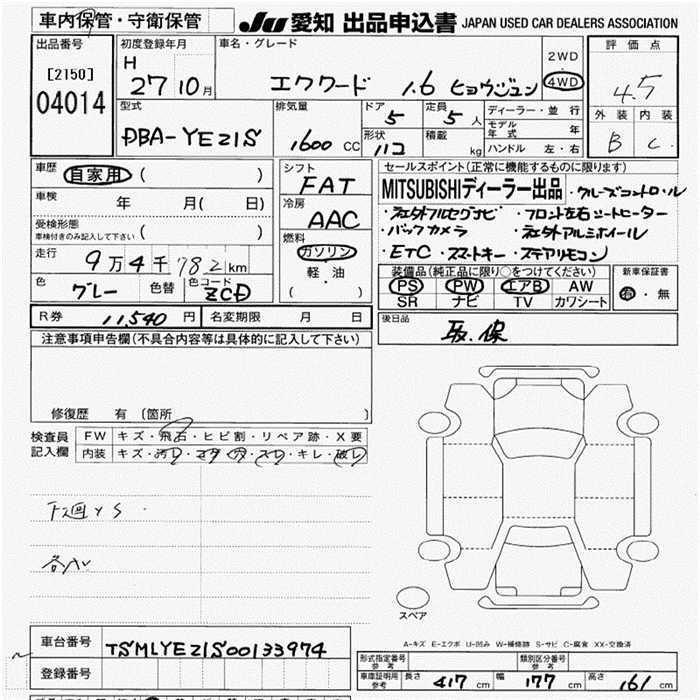 車内保管・守衛保管
JU 愛知 出品申込書 JAPAN USED CAR DEALERS ASSOCIATION
出品番号
[2150]
04014
初度登録年月
H
27 10月
車名・グレード
エクワード 1.6 ヒョウジュン
2WD
4WD
評価点
4.5
外装 内装
B C
型式
DBA-YEZ1S
排気量
1600 CC
ドア
5
形状
定員
5 人
積載
kg
ディーラー・並行
モデル年式 年
ハンドル 左・右
車歴
自家用 ( )
車検
年 月( 日)
受検形態
車検付きのみ記入して下さい ( )
走行
9万4千782km
色
グレー
色替
色コード
ZCD
シフト
FAT
冷房
AAC
燃料
ガソリン
軽・油
( )
R券 11,540 円
名変期限 月 日
セールスポイント(正常に機能するものに限ります)
MITSUBISHIディーラー出品 ・クルーズコントロール
・社外フルセグナビ ・フロント左右シートヒーター
・バックカメラ ・社外アルミホイール
・ETC ・スマートキー ・ステアリモコン
装備品(純正品に限り○をつけてください)
PS PW エアB AW
SR ナビ TV カワシート
新車保証書
有・無
後日品
取.保
注意事項申告欄(不具合内容等は具体的に記入して下さい)
修復歴 有 〔箇所 〕
検査員記入欄
FW キズ・飛石・ヒビ割・リペア跡・X要
内装 キズ・汚レ・コゲ・穴・スレ・キレ・破レ
下廻りS
スペア
A-キズ E-エクボ U-凹み W-補修跡 S-サビ C-腐食 XX-交換済
車台番号 TSMLYEZ1S00133974
登録番号
形式指定番号参考
類別区分番号参考
車庫証明用参考 長さ 417 cm 幅 177 cm 高さ 161 cm